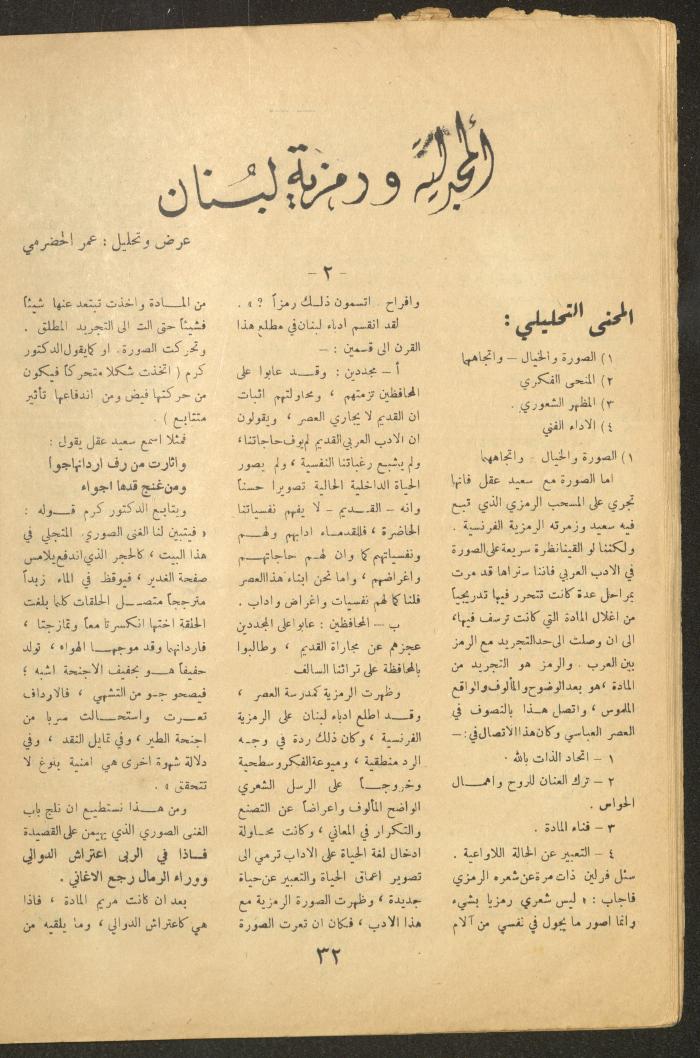 المجدلية ورمزية لبنان
عرض وتحليل : عمر الحضرمي
- ٢ -
المحنى التحليلي :
١) الصورة والخيال – واتجاهها
٢) المنحى الفكري
٣) المظهر الشعوري .
٤) الاداء الفني
١) الصورة والخيال - واتجاهها
اما الصورة مع سعيد عقل فانها
تجري على المسحب الرمزي الذي تبع
فيه سعيد وزمرته الرمزية الفرنسية .
ولكننا لو القينا نظرة سريعة على الصورة
في الادب العربي فاننا سنراها قد مرت
بمراحل عدة كانت تتحرر فيها تدريجياً
من اغلال المادة التي كانت ترسف فيها،
الى ان وصلت الى حد التجريد مع الرمز
بين العرب . والرمز هو التجريد من
المادة ،هو بعد الوضوح والمألوف والواقع
الملموس ، واتصل هذا بالتصوف في
العصر العباسي وكان هذا الاتصال في :–
١ – اتحاد الذات بالله .
٢ – ترك العنان للروح واهمال
الحواس .
٣ – فناء المادة .
٤ – التعبير عن الحالة اللاواعية .
سئل فرلين ذات مرة عن شعره الرمزي
فاجاب : « ليس شعري رمزيا بشيء
وانما اصور ما يجول في نفسي من آلام
وافراح . اتسمون ذلك رمزاً ؟ » .
لقد انقسم ادباء لبنان في مطلع هذا
القرن الى قسمين : –
أ – مجددين : وقد عابوا على
المحافظين تزمتهم ، ومحاولتهم اثبات
ان القديم لا يجاري العصر ، ويقولون
ان الادب العربي القديم لم يوف حاجاتنا،
ولم يشبع رغباتنا النفسية ، ولم يصور
الحياة الداخلية الحالية تصويرا حسناً
وانه – القديم – لا يفهم نفسياتنا
الحاضرة ، فللقدماء ادابهم ولهم
ونفسياتهم كما وان لهم حاجاتهم
واغراضهم ، واما نحن ابناء هذا العصر
فلنا كما لهم نفسيات واغراض واداب .
ب – المحافظين : عابوا على المجددين
عجزهم عن مجاراة القديم ، وطالبوا
بالمحافظة على تراثنا السالف .
وظهرت الرمزية كمدرسة العصر ،
وقد اطلع ادباء لبنان على الرمزية
الفرنسية ، وكان ذلك ردة في وجه
الرد منطقية ، وميوعة الفكر وسطحية
وخروجاً على الرسل الشعري
الواضح المألوف واعراضاً عن التصنع
والتكرار في المعاني ، وكانت محاولة
ادخال لغة الحياة على الاداب ترمي الى
تصوير اعماق الحياة والتعبير عن حياة
جديدة ، وظهرت الصورة الرمزية مع
هذا الادب ، فكان ان تعرت الصورة
من المادة واخذت تبتعد عنها شيئاً
فشيئاً حتى الت الى التجريد المطلق .
وتحركت الصورة. او كما يقول الدكتور
كرم ( اتخذت شكلا متحركاً فيكون
من حركتها فيض ومن اندفاعها تأثير
متتابع ) .
فمثلا اسمع سعيد عقل يقول :
واثارت من رف اردانها جوا
ومن غنج قدها اجواء
ويتابع الدكتور كرم قوله :
« فيتبين لنا الغنى الصوري المتجلي في
هذا البيت ، كالحجر الذي اندفع يلامس
صفحة الغدير ، فيوقظ في الماء زبداً
مترججاً متصل الحلقات كلما بلغت
الحلقة اختها انكسرتا معاً وتمازجتا ،
فاردانها وقد موجها الهواء ، تولد
حفيفاً هو بحفيف الاجنحة اشبه ؛
فيصحو جو من التشهي ، فالارداف
تعرت واستحالت سربا من
اجنحة الطير ، وفي تمايل القد ، وفي
دلالة شهوة اخرى هي امنية بلوغ لا
تتحقق » .
ومن هذا نستطيع ان نلج باب
الغنى الصوري الذي يهيمن على القصيدة
فاذا في الربى اعتراش الدوالي
ووراء الرمال رجع الاغاني .
بعد ان كانت مريم المادة ، فاذا
هي كاعتراش الدوالي ، وما يلقيه من
٣٢